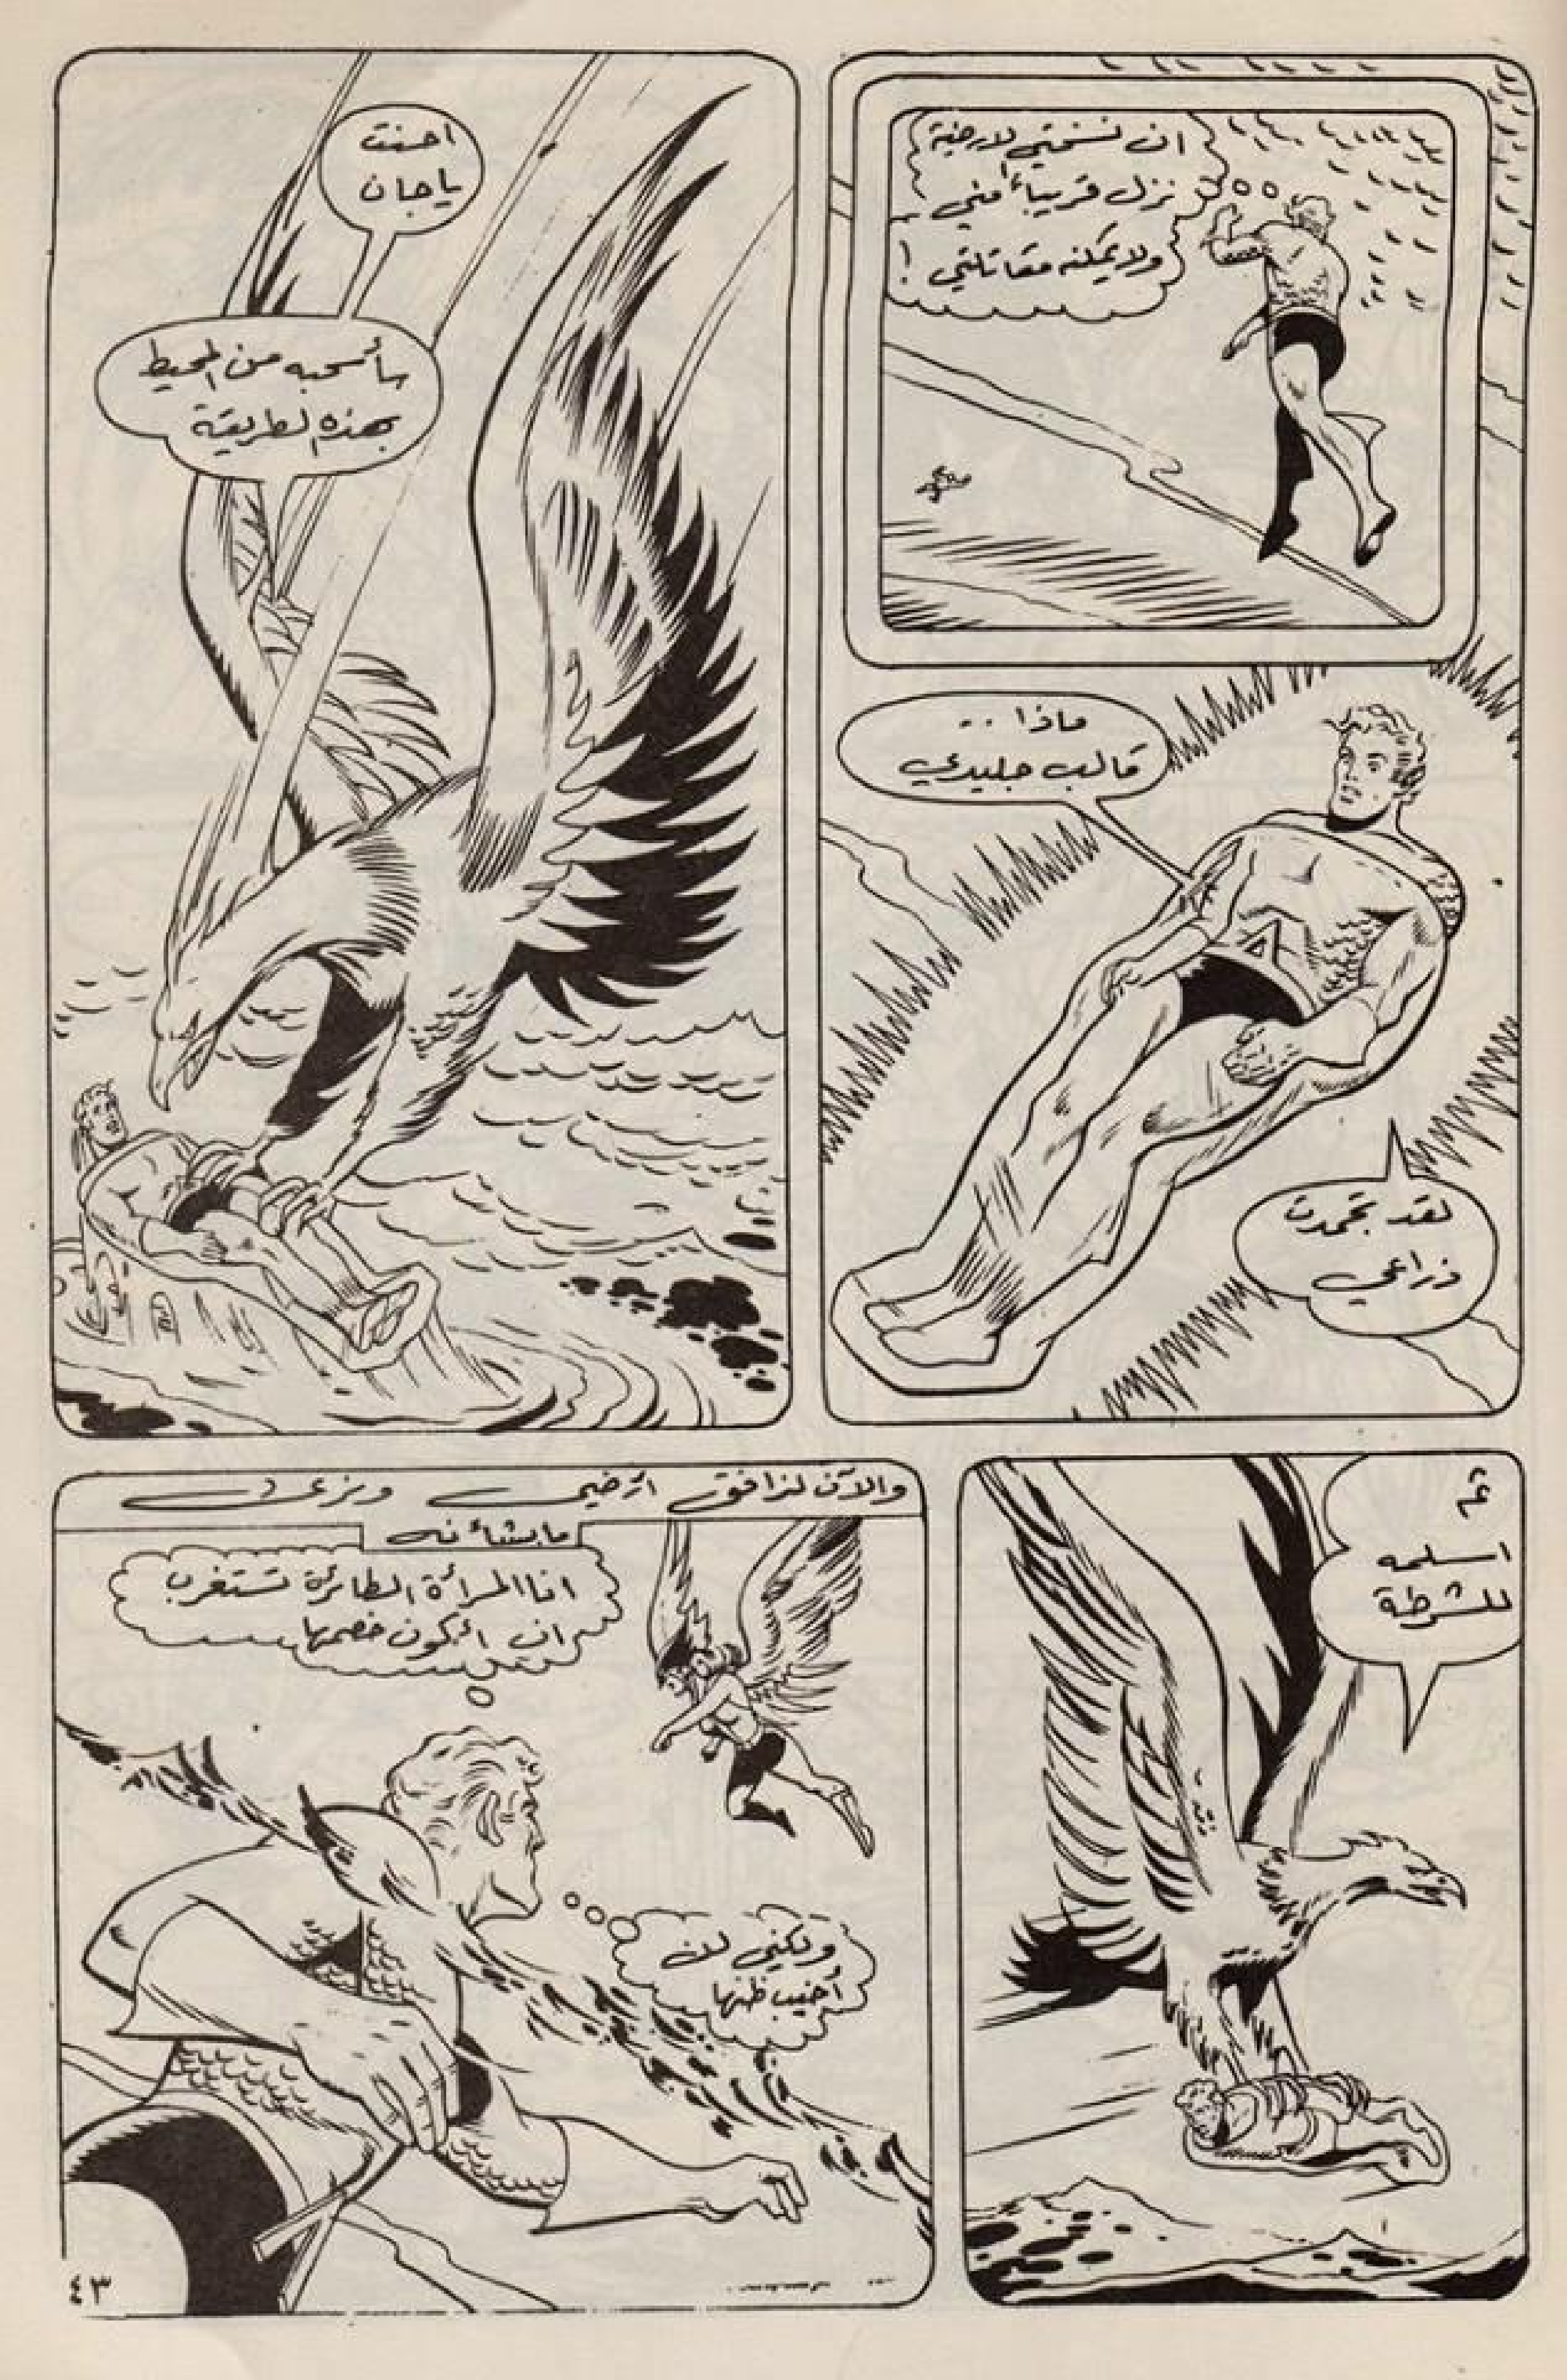 ان نسختي لارضية
نزل قريباً مني
ولا يمكنه مقاتلتي !
ماذا ..
قالب جليدي
لقد تجمدت
ذراعي
احسنت
ياجان
سأسحبه من المحيط
بهذه الطريقة
ثم
اسلمه
للشرطة
والآن لنرافق آرضي ونرى
مابشأنه
انا المرأة الطائرة تستغرب
ان أكون خصمها
ولكني لن
أخيب ظنها
٤٣